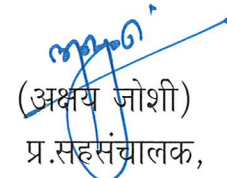 (अक्षय जोशी)
प्र.सहसंचालक,